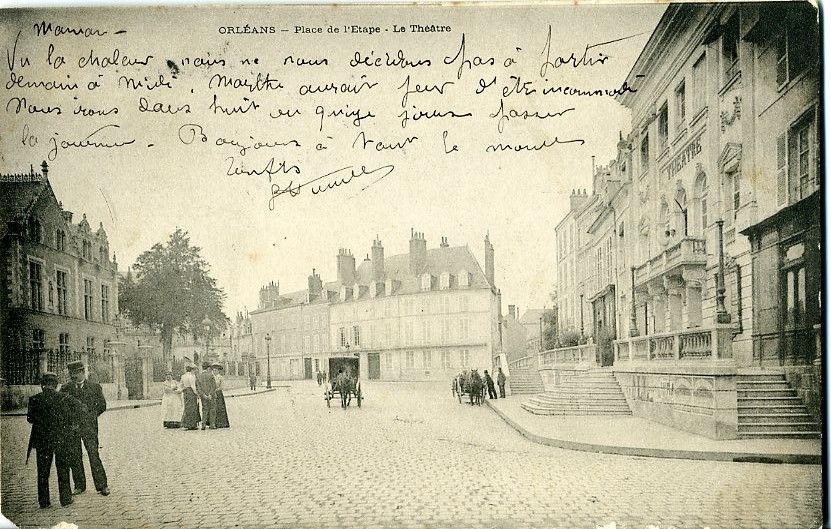 ORLÉANS — Place de l'Etape - Le Théâtre
Maman —
Vu la chaleur nous ne nous décidons pas à partir
demain à midi, Marthe aurait peur d'être incommodé
Nous irons dans huit ou quinze jours passer
la journée. Bonjours à tout le monde
THÉATRE